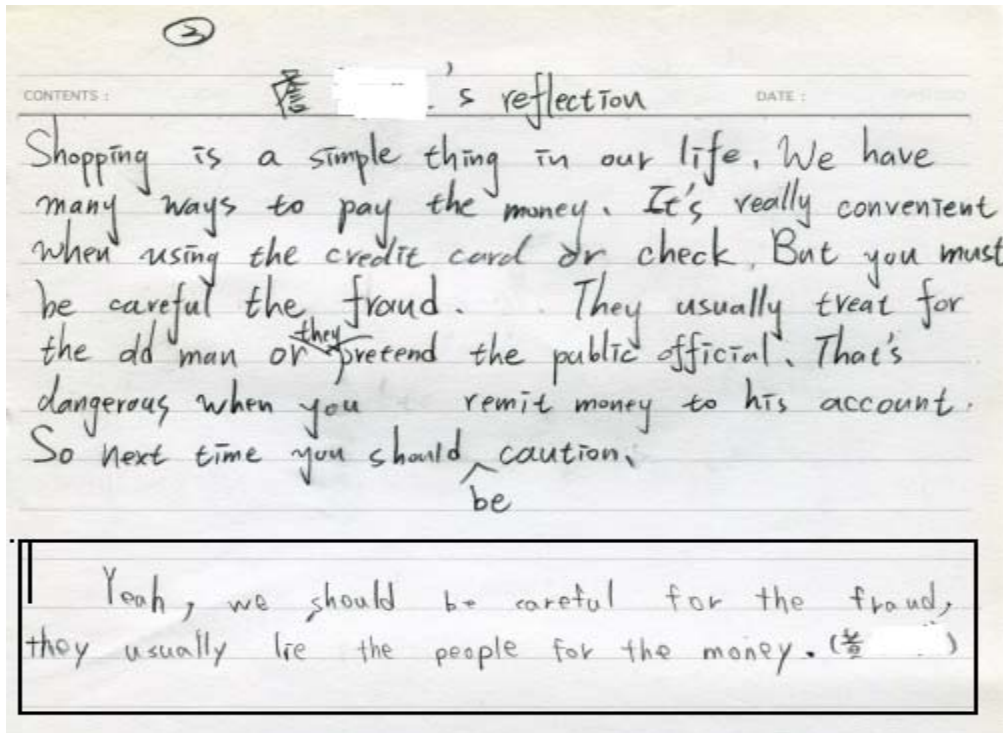 ②
CONTENTS :
詹 's reflection
DATE :
Shopping is a simple thing in our life. We have
many ways to pay the money. It's really convenient
when using the credit card or check. But you must
be careful the fraud. They usually treat for
they
the old man or pretend the public official. That's
dangerous when you remit money to his account.
So next time you should caution.
be
Yeah, we should be careful for the fraud,
they usually lie the people for the money. ( )